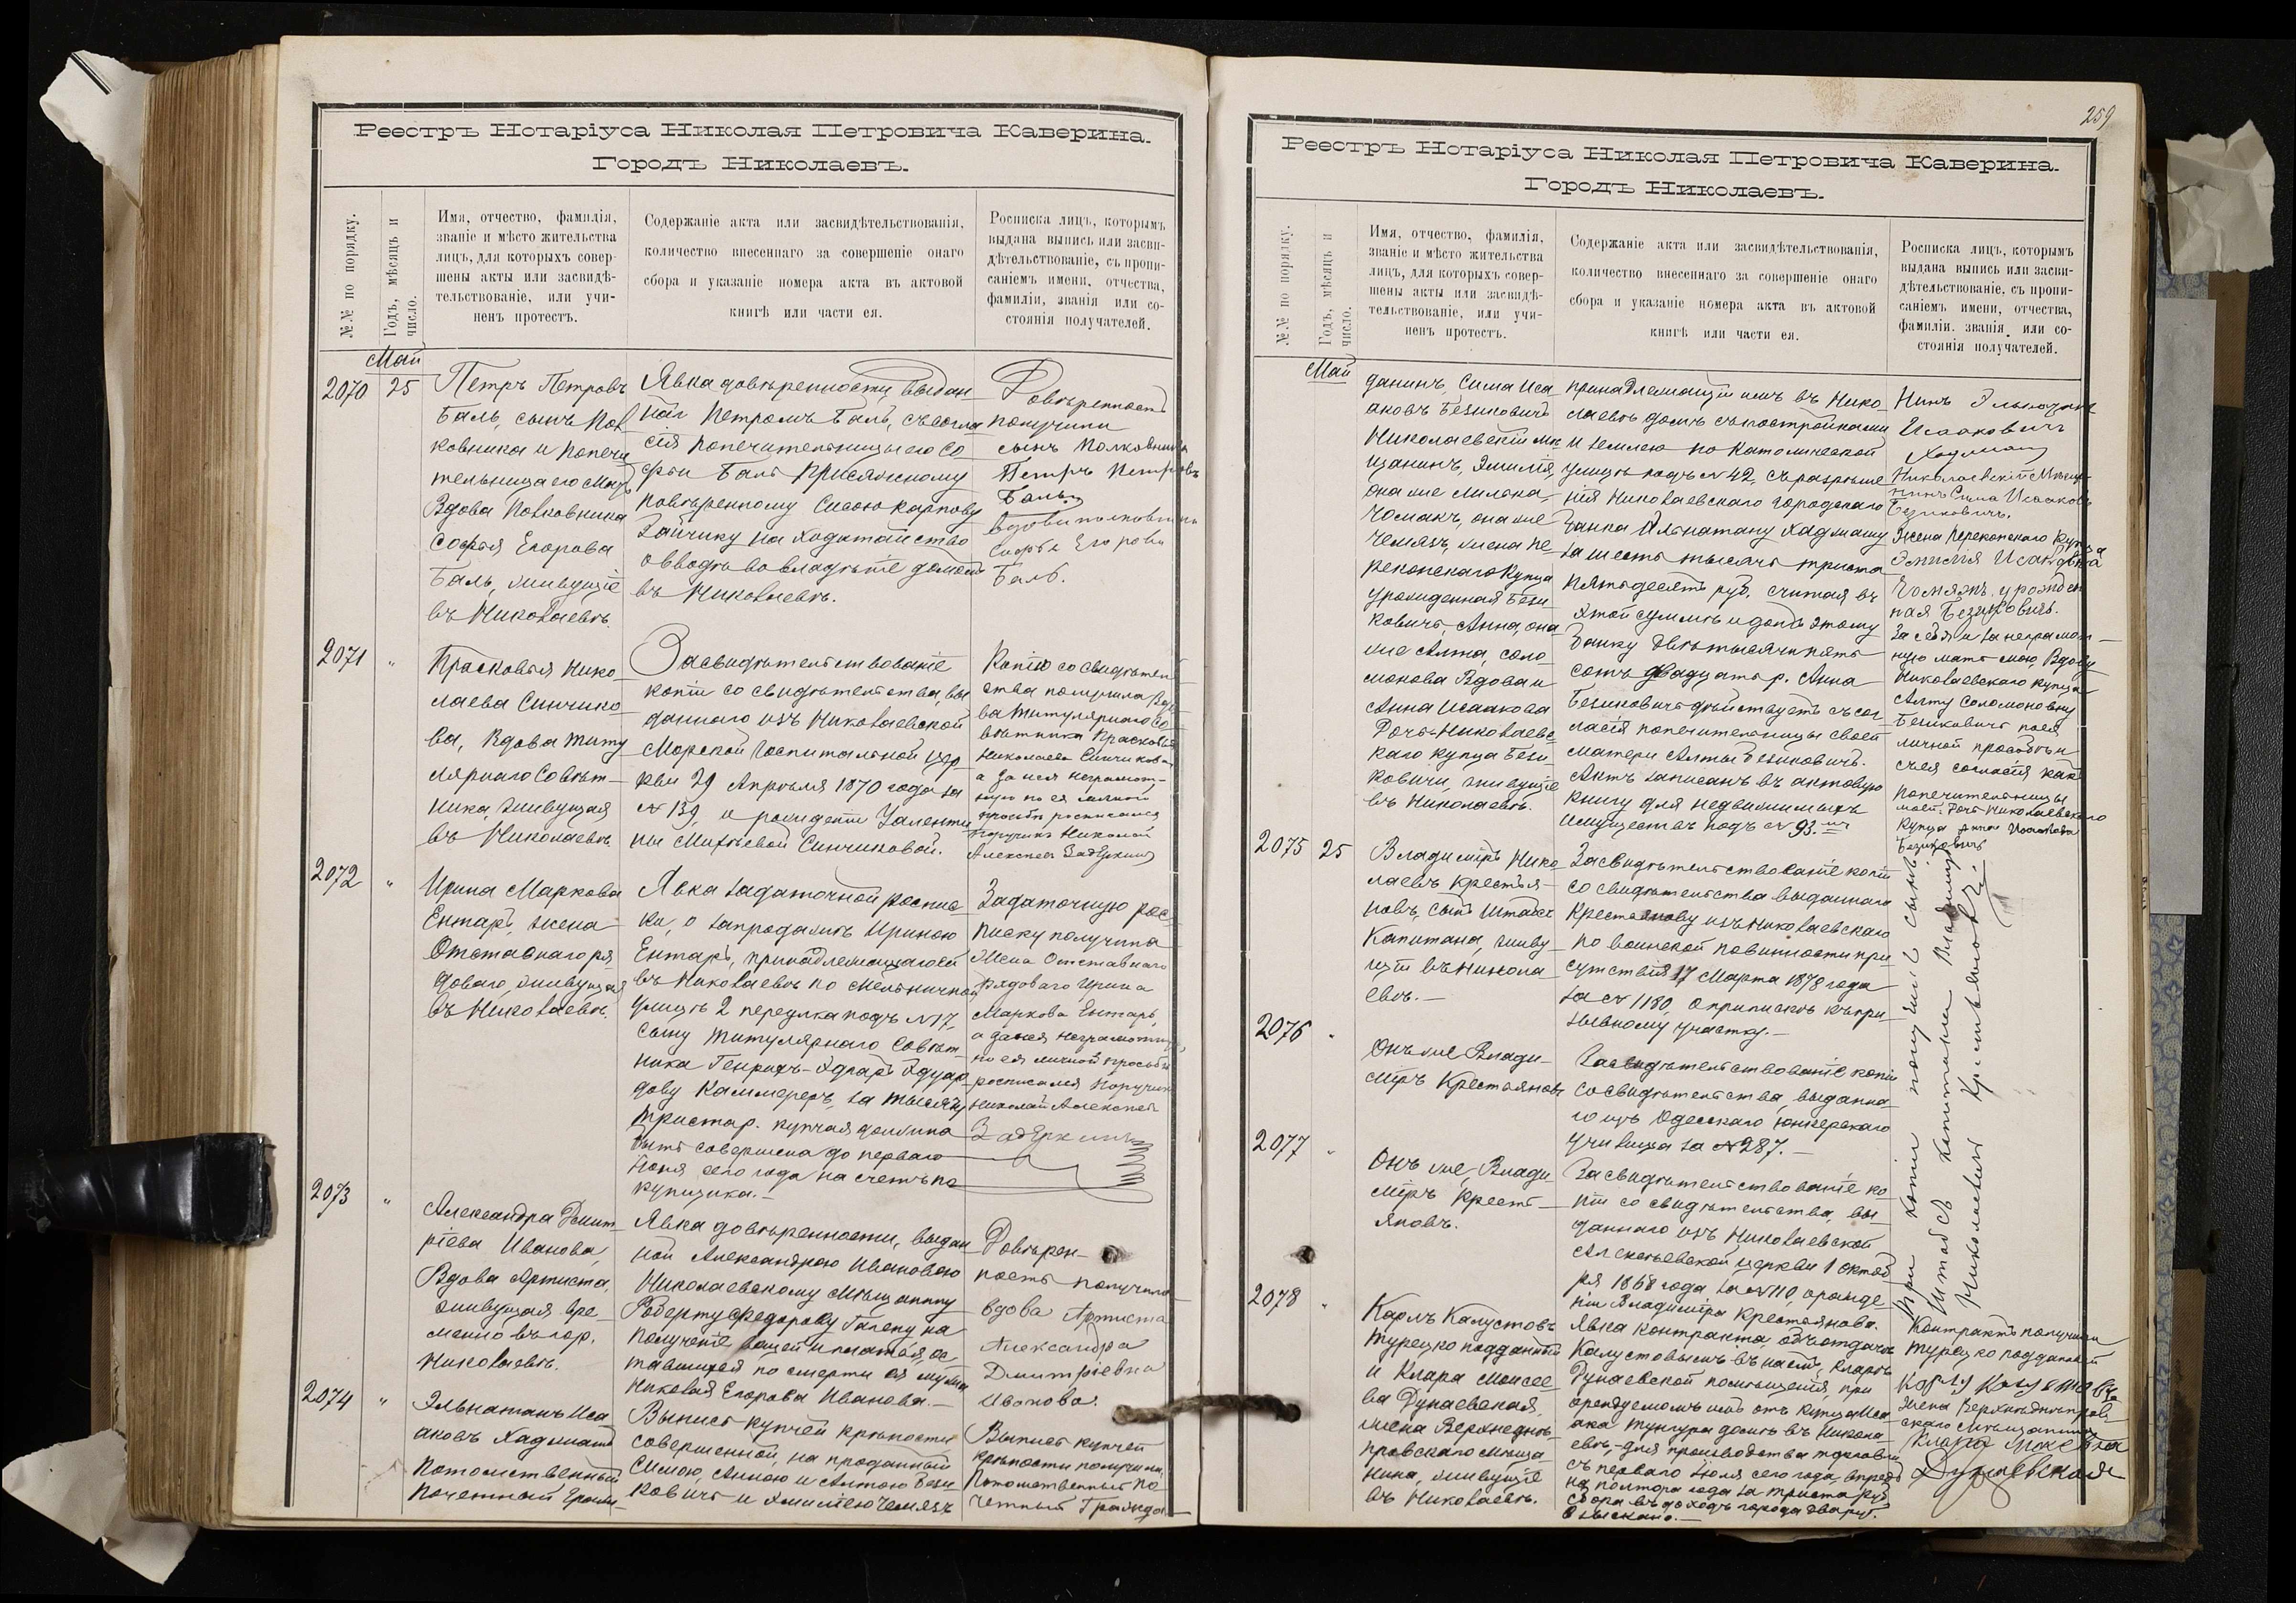 Реестръ Нотаріуса Николая Петровича Каверина.
Городъ Николаевъ.
№№ по порядку.
Годъ, мѣсяцъ и
число.
Имя, отчество, фамилія,
званіе и мѣсто жительства
лицъ, для которыхъ совер-
шены акты или засвидѣ-
тельствованіе, или учи-
ненъ протестъ.
Содержаніе акта или засвидѣтельствованія,
количество внесеннаго за совершеніе онаго
сбора и указаніе номера акта въ актовой
книгѣ или части ея.
Росписка лицъ, которымъ
выдана выпись или засви-
дѣтельствованіе, съ пропи-
саніемъ имени, отчества,
фамиліи, званія или со-
стоянія получателей.
Май
2070 25
Петръ Петровъ
Баль, сынъ Пол
ковника и попечи
тельница его мать
Вдова Полковника
Софья Егорова
Баль, живущіе
въ Николаевѣ.
Явка довѣренности выдан
ной Петромъ Баль, съ согла
сія попечительницы его Со
фьи Баль Присяжному
повѣренному Сысою Карпову
Зайчику на ходатайство
о вводѣ во владѣніе домомъ
въ Николаевѣ.
Довѣренность
получили
сынъ Полковника
Петръ Петровъ
Баль
Вдова полковника
Софья Егорова
Баль.
2071 "
Прасковья Нико
лаева Синчико
ва, Вдова Титу
лярнаго Совѣт
ника, живущая
въ Николаевѣ.
Засвидѣтельствованіе
копіи со свидѣтельства, вы
даннаго изъ Николаевской
Морской Госпитальной цер
кви 29 Апрѣля 1870 года за
№ 139, о рожденіи Валенти
ны Матвѣевой Синчиковой.
Копію со свидѣтель
ства получила Вдо
ва Титулярнаго Со
вѣтника Прасковья
Николаева Синчикова
а за нея неграмот-
ную по ея личной
просьбѣ росписался
Поручикъ Николай
Алексѣевъ Задеркинъ
2072 "
Ирина Маркова
Ентарь, жена
Отставнаго ря
доваго, живущая
въ Николаевѣ.
Явка задаточной роспис
ки, о запродажѣ Ириною
Ентарь, принадлежащаго ей
въ Николаевѣ по Мельничной
улицѣ 2 переулка подъ №17,
сыну Титулярнаго Совѣт
ника Генриху-Эдгару Эдуар
дову Каммереръ, за тысячу
триста р. купчая должна
быть совершена до перваго
Іюня сего года на счетъ по
купщика.
Задаточную рос
писку получила
Жена Отставнаго
рядоваго Ирина
Маркова Ентарь,
а за нея неграмотную,
по ея личной просьбѣ
росписался Поручикъ
Николай Алексѣевъ
Задеркинъ
2073 "
Александра Дмит
ріева Иванова,
Вдова Артиста,
живущая вре
менно въ гор.
Николаевѣ.
Явка довѣренности, выдан
ной Александрою Ивановою
Николаевскому мѣщанину
Роберту Федорову Галену на
полученіе вещей и платья, ос
тавшихся по смерти ея мужа
Николая Егорова Иванова.
Довѣрен-
ность получила
вдова Артиста
Александра
Дмитріевна
Иванова.
2074 "
Эльнатанъ Иса
аковъ Хаджи
Потомственный
Почетный Граж
Выпись купчей крѣпости
совершенной, на проданный
Симою, Анною и Алтою Бези
ковичъ и Эмиліею Чемякъ
Выпись купчей
крѣпости получили,
Потомственный По
четный Гражда
259
Реестръ Нотаріуса Николая Петровича Каверина.
Городъ Николаевъ.
№№ по порядку.
Годъ, мѣсяцъ и
число.
Имя, отчество, фамилія,
званіе и мѣсто жительства
лицъ, для которыхъ совер-
шены акты или засвидѣ-
тельствованіе, или учи-
ненъ протестъ.
Содержаніе акта или засвидѣтельствованія,
количество внесеннаго за совершеніе онаго
сбора и указаніе номера акта въ актовой
книгѣ или части ея.
Росписка лицъ, которымъ
выдана выпись или засви-
дѣтельствованіе, съ пропи-
саніемъ имени, отчества,
фамиліи. званія или со-
стоянія получателей.
Май
данинъ, Сима Иса
аковъ Безиковичъ
Николаевскій мѣ
щанинъ, Эмилія,
она же
она же
Чемякъ, жена Пе
рекопскаго Купца
урожденная Бези
ковичъ, Анна, она
же Алта, Соло
монова Вдова и
Анна Исаакова
Дочь Николаевс
каго купца Бези
ковичи, живущіе
въ Николаевѣ.
принадлежащій имъ въ Нико
лаевѣ домъ съ постройками
и землею по Католической
улицѣ подъ №42, съ разрѣше
нія Николаевскаго городскаго
банка Эльнатану Хаджи
за шесть тысячъ триста
пятьдесятъ руб. считая въ
этой суммѣ и долгъ этому
банку двѣ тысячи пять
сотъ двадцать р. Анна
Безиковичъ дѣйствуетъ съ сог
ласія попечительницы своей
матери Алты Безиковичъ.
Актъ записанъ въ актовую
книгу для недвижимыхъ
имуществъ подъ № 93.
Нинъ Эльнатанъ
Исааковичъ
Николаевскій Мѣща
нинъ Сима Исааковъ
Безиковичъ.
Жена Перекопскаго Купца
Эмилія Исааковна
Чемякъ, урожден
ная Безиковичъ.
За себя и за неграмот
ную мать мою, Вдову
Николаевскаго купца
Алту Соломоновну
Безиковичъ по ея
личной просьбѣ и
съ ея согласія какъ
попечительницы
моей. Дочь Николаевскаго
Купца Анна Исаакова
Безиковичъ
2075 25
Владиміръ Нико
лаевъ Крестья
новъ, сынъ Штабсъ
Капитана, живу
щій въ Никола
евѣ.
Засвидѣтельствованіе копіи
со свидѣтельства выданнаго
Крестьянову изъ Николаевскаго
по воинской повинности при
сутствія 17 Марта 1878 года
за № 1180, о припискѣ къ при
зывному участку.
2076 "
Онъ же Влади
міръ Крестьяновъ
Засвидѣтельствованіе копіи
со свидѣтельства, выданна
го изъ Одесскаго юнкерскаго
училища за № 287.
2077 "
Онъ же, Влади
міръ Крест
яновъ.
Засвидѣтельствованіе ко
піи со свидѣтельства, вы
даннаго изъ Николаевской
Алексѣевской церкви 1 октяб
ря 1868 года за № 110, о рожде
ніи Владиміра Крестьянова.
Три копіи получилъ сынъ
Штабсъ Капитана Владиміръ
Николаевичъ Крестьяновъ
2078 "
Карлъ Калустовъ
Турецко подданный
и Клара Моисее
ва Дунаевская
жена Верхнеднѣ
провскаго мѣща
нина, живущіе
въ Николаевѣ.
Явка контракта, объ отдачѣ
Калустовымъ въ наемъ, Кларѣ
Дунаевской помѣщенія, при
арендуемомъ имъ отъ купца Иса
ака Тунгура домѣ въ Никола
евѣ для производства торговли
съ перваго Іюля сего года впредь
на полтора года за триста руб.
сбора въ доходъ города два руб.
взыскано.
Контрактъ получили
Турецко подданный
Карлу Калустовъ
Жена Верхнеднѣпров
скаго мѣщанина
Клара Моисеева
Дунаевская